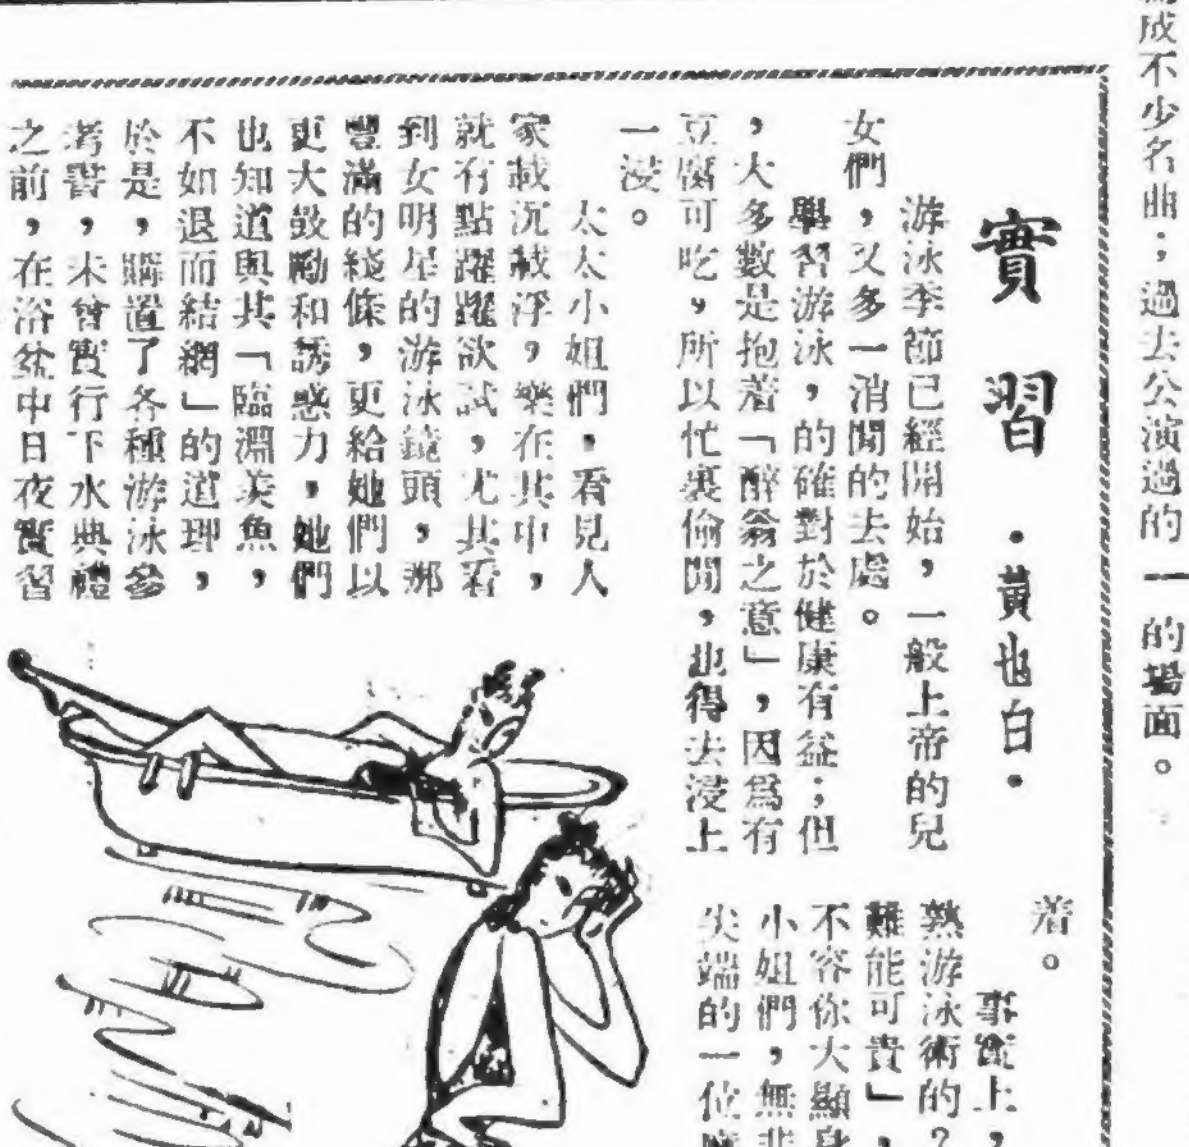 成不少名曲；過去公演過的一的場面。
實習
·黃也白·
游泳季節已經開始，一般上帝的兒
女們，又多一消閒的去處。
學習游泳，的確對於健康有益；但
，大多數是抱着「醉翁之意」，因爲有
豆腐可吃，所以忙裏偷閒，也得去浸上
一浸。
太太小姐們，看見人
家載沉載浮，樂在其中，
就有點躍躍欲試，尤其看
到女明星的游泳鏡頭，那
豐滿的綫條，更給她們以
更大鼓勵和誘惑力，她們
也知道與其「臨淵羡魚，
不如退而結網」的道理，
於是，購置了各種游泳參
考書，未曾實行下水典禮
之前，在浴盆中日夜實習
着。
事實上，
熟游泳術的？
難能可貴」，
不容你大顯身
小姐們，無非
尖端的一位